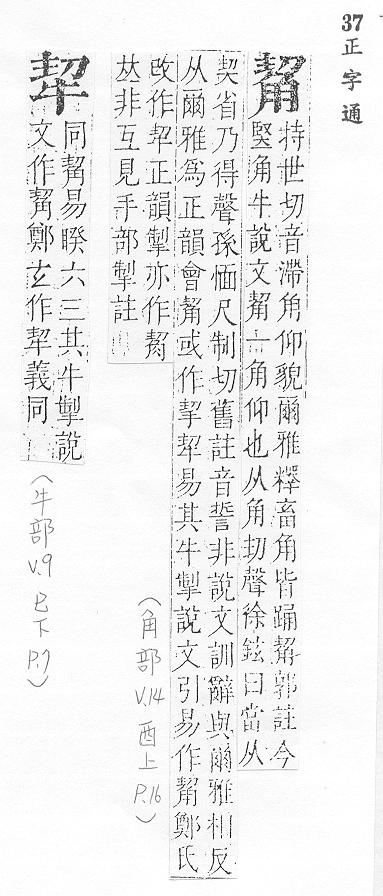 37 正字通
觢
持世切音滯角仰貌爾雅釋畜角皆踊觢郭註今
豎角牛說文觢一角仰也从角㓞聲徐鉉曰當从
契省乃得聲孫愐尺制切舊註音誓非說文訓辭與爾雅相反
从爾雅爲正韻會觢或作挈㸷易其牛掣說文引易作觢鄭氏
改作㸷正韻掣亦作觢
𠀤非互見手部掣註
(角部 V.14 酉上 P.16)
㸷
同觢易睽六三其牛掣說
文作觢鄭玄作㸷義同
(牛部 V.9 巳下 P.7)